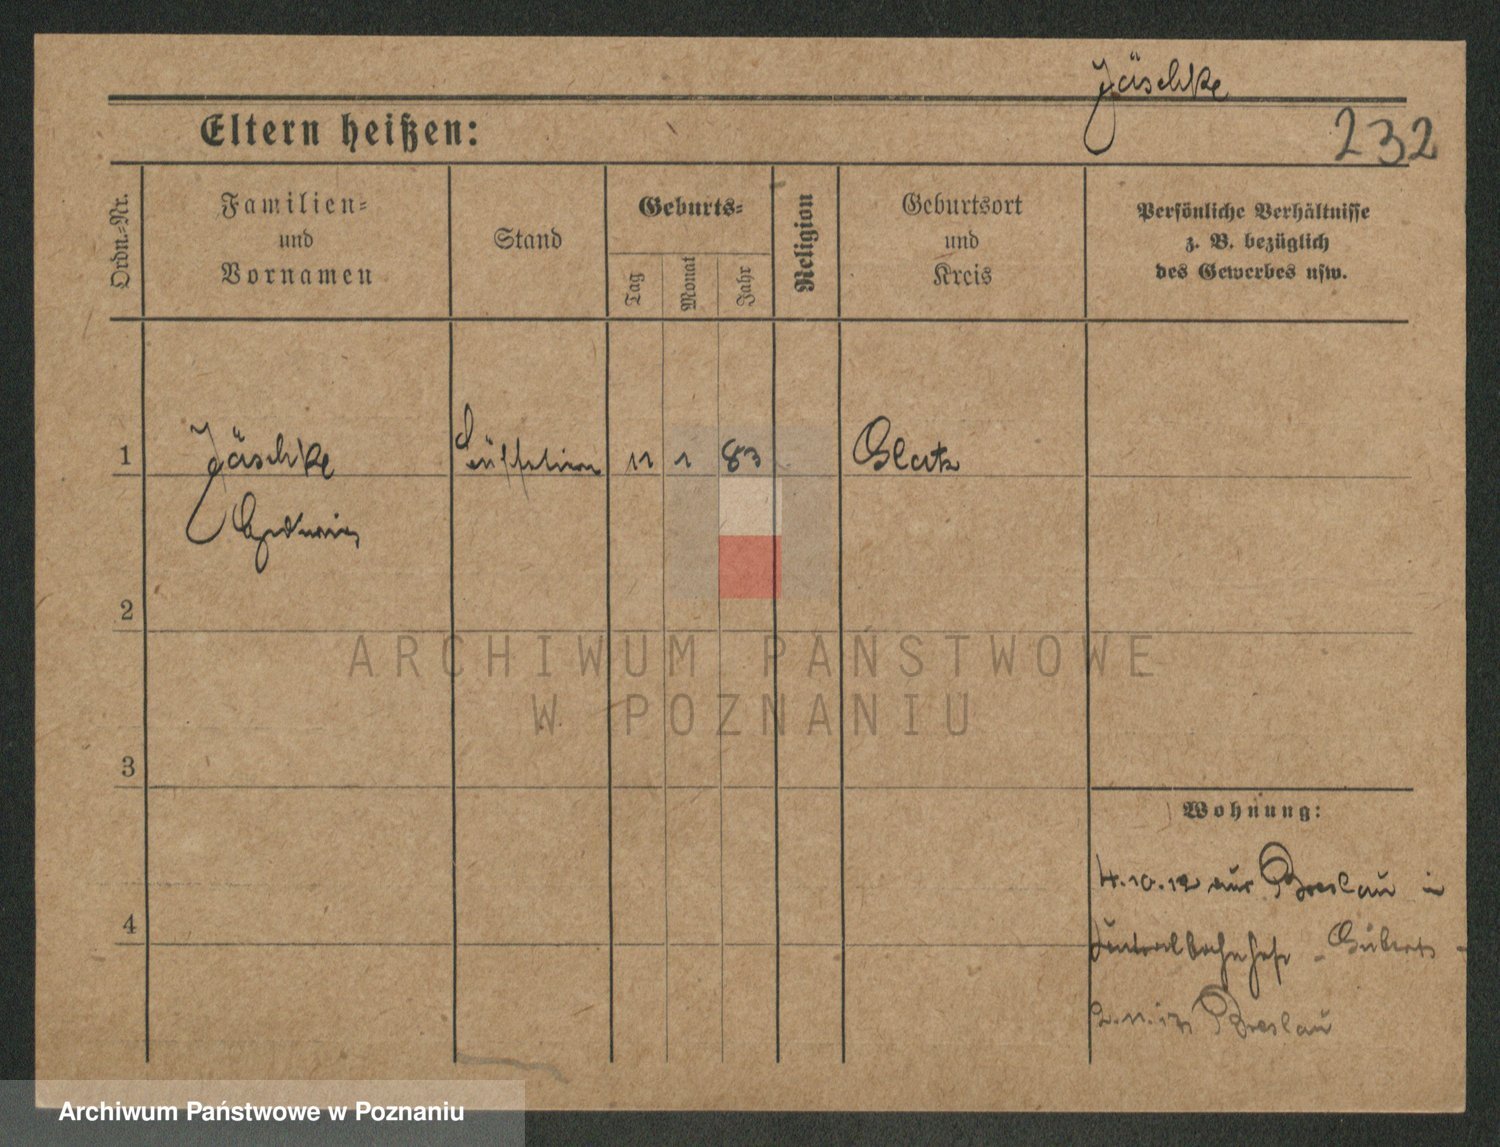 Jäschke
232
Eltern heißen:
Ordn.-Nr.
Familien-
und
Vornamen
Stand
Geburts-
Tag
Monat
Jahr
Religion
Geburtsort
und
Kreis
Persönliche Verhältnisse
z. B. bezüglich
des Gewerbes usw.
1 Jäschke 11 1 83 Glatz
Hedwig
2
ARCHIWUM PAŃSTWOWE
W POZNANIU
3
Wohnung:
4.10.12 aus Breslau in
4
Zentralbahnhof -
Breslau
Archiwum Państwowe w Poznaniu